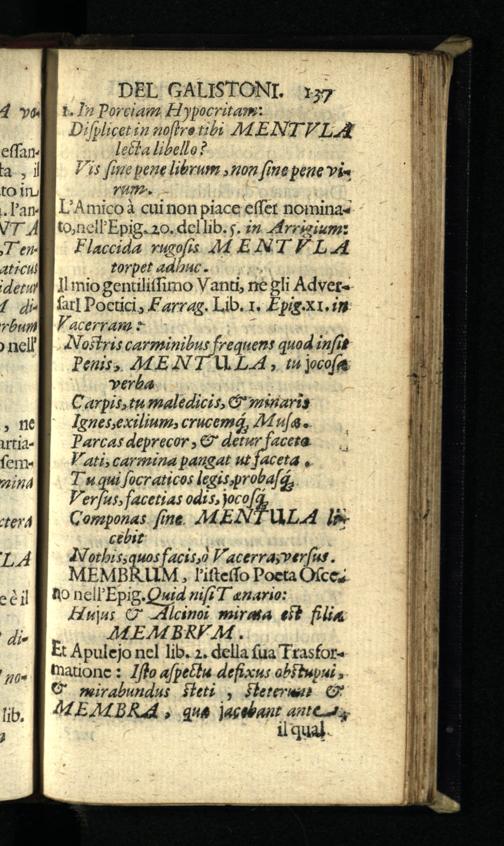 DEL GALISTONI. 137
1. In Porciam Hypocritam:
Displicet in nostro tibi MENTVLA
lecta libello?
Vis sine pene librum, non sine pene vi-
rum.
L'Amico à cui non piace esser nomina-
to, nell'Epig. 20. del lib. 5. in Arrigium:
Flaccida rugosis MENTVLA
torpet adhuc.
Il mio gentilissimo Vanti, ne gli Adver-
sarI Poetici, Farrag. Lib. 1. Epig. XI. in
Vacerram:
Nostris carminibus frequens quod insit
Penis, MENTULA, tu jocosa
verba
Carpis, tu maledicis, & minaris
Ignes, exilium, crucemq́; Musæ.
Parcas deprecor, & detur faceta
Vati, carmina pangat ut faceta.
Tu qui socraticos legis, probasq́;
Versus, facetias odis, jocosq́;
Componas sine MENTULA li-
cebit
Nothis, quos facis, ò Vacerra, versus.
MEMBRUM, l'istesso Poeta Osce-
no nell'Epig. Quid nisi Tænario:
Hujus & Alcinoi mirata est filia
MEMBRVM.
Et Apulejo nel lib. 2. della sua Trasfor-
matione: Isto aspectu defixus obstupui,
& mirabundus steti, steterunt &
MEMBRA, quæ jacebant ante
il qual
A vo-
essan-
ta, il
to in
. l'an-
NTA
, Ten-
aticus
idetur
M di-
rbum
o nell'
, ne
artia-
sem-
mina
ctera
LA
e è il
di-
no-
lib.